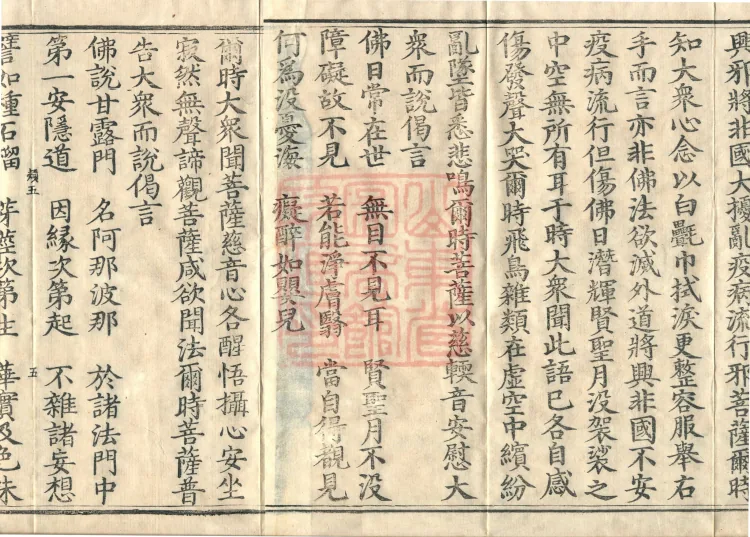 興邪將非國大擾亂疫病流行邪菩薩爾時
知大衆心念以白㲲巾拭淚更整容服舉右
手而言亦非佛法欲滅外道將興非國不安
疫病流行但傷佛日潛輝賢聖月没袈裟之
中空無所有耳于時大衆聞此語已各自感
傷發聲大哭爾時飛鳥雜類在虛空中繽紛
亂墜皆悉悲鳴爾時菩薩以慈輭音安慰大
衆而說偈言
佛日常在世 無目不見耳 賢聖月不没
障礙故不見 若能淨膚翳 當自得覩見
何為没憂海 癡醉如嬰兒
爾時大衆聞菩薩慈音心各醒悟攝心安坐
寂然無聲諦觀菩薩咸欲聞法爾時菩薩普
告大衆而說偈言
佛說甘露門 名阿那波那 於諸法門中
第一安隱道 因緣次第起 不雜諸妄想
類五 五
譬如種石㽞 芽莖次第生 華實及色味